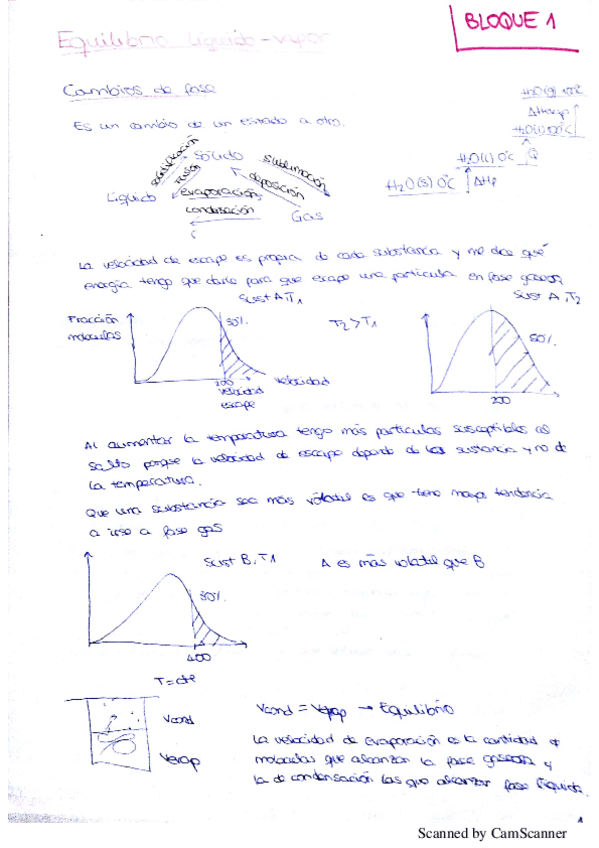 BLOQUE 1
Equilibrio líquido-vapor
Cambios de fase
Es un cambio de un estado a otro.
H2O(g) 100ºC
ΔHvap
H2O(l) 100ºC
Q
H2O(l) 0ºC
ΔHf
H2O(s) 0ºC
Sólido
solidificación
fusión
sublimación
deposición
Líquido
evaporación
condensación
Gas
La velocidad de escape es propia de cada substancia y me dice qué
energía tengo que darle para que escape una partícula en fase gaseosa
Sust A, T1
Sust A, T2
Fracción
moléculas
30%
T2 > T1
50%
200
velocidad
velocidad
escape
200
Al aumentar la temperatura tengo más partículas susceptibles al
salto porque la velocidad de escape depende de la sustancia y no de
la temperatura.
Que una substancia sea más volátil es que tiene mayor tendencia
a irse a fase gas
Sust B, T1
A es más volátil que B
30%
400
T = cte
Vcond
Vevap
Vcond = Vevap → Equilibrio
La velocidad de evaporación es la cantidad de
moléculas que alcanzan la fase gaseosa y
la de condensación las que alcanzan fase líquida.
1
Scanned by CamScanner